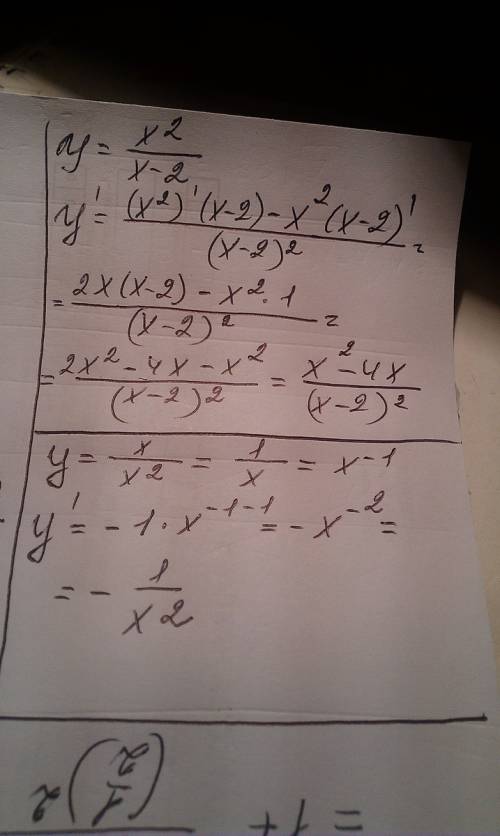 y = x²/(x-2)
y' = ((x²)'(x-2) - x²(x-2)')/(x-2)² =
= (2x(x-2) - x²·1)/(x-2)² =
= (2x² - 4x - x²)/(x-2)² = (x² - 4x)/(x-2)²
y = x/x² = 1/x = x⁻¹
y' = -1·x⁻¹⁻¹ = -x⁻² =
= - 1/x²
= 1 + (1/2)²